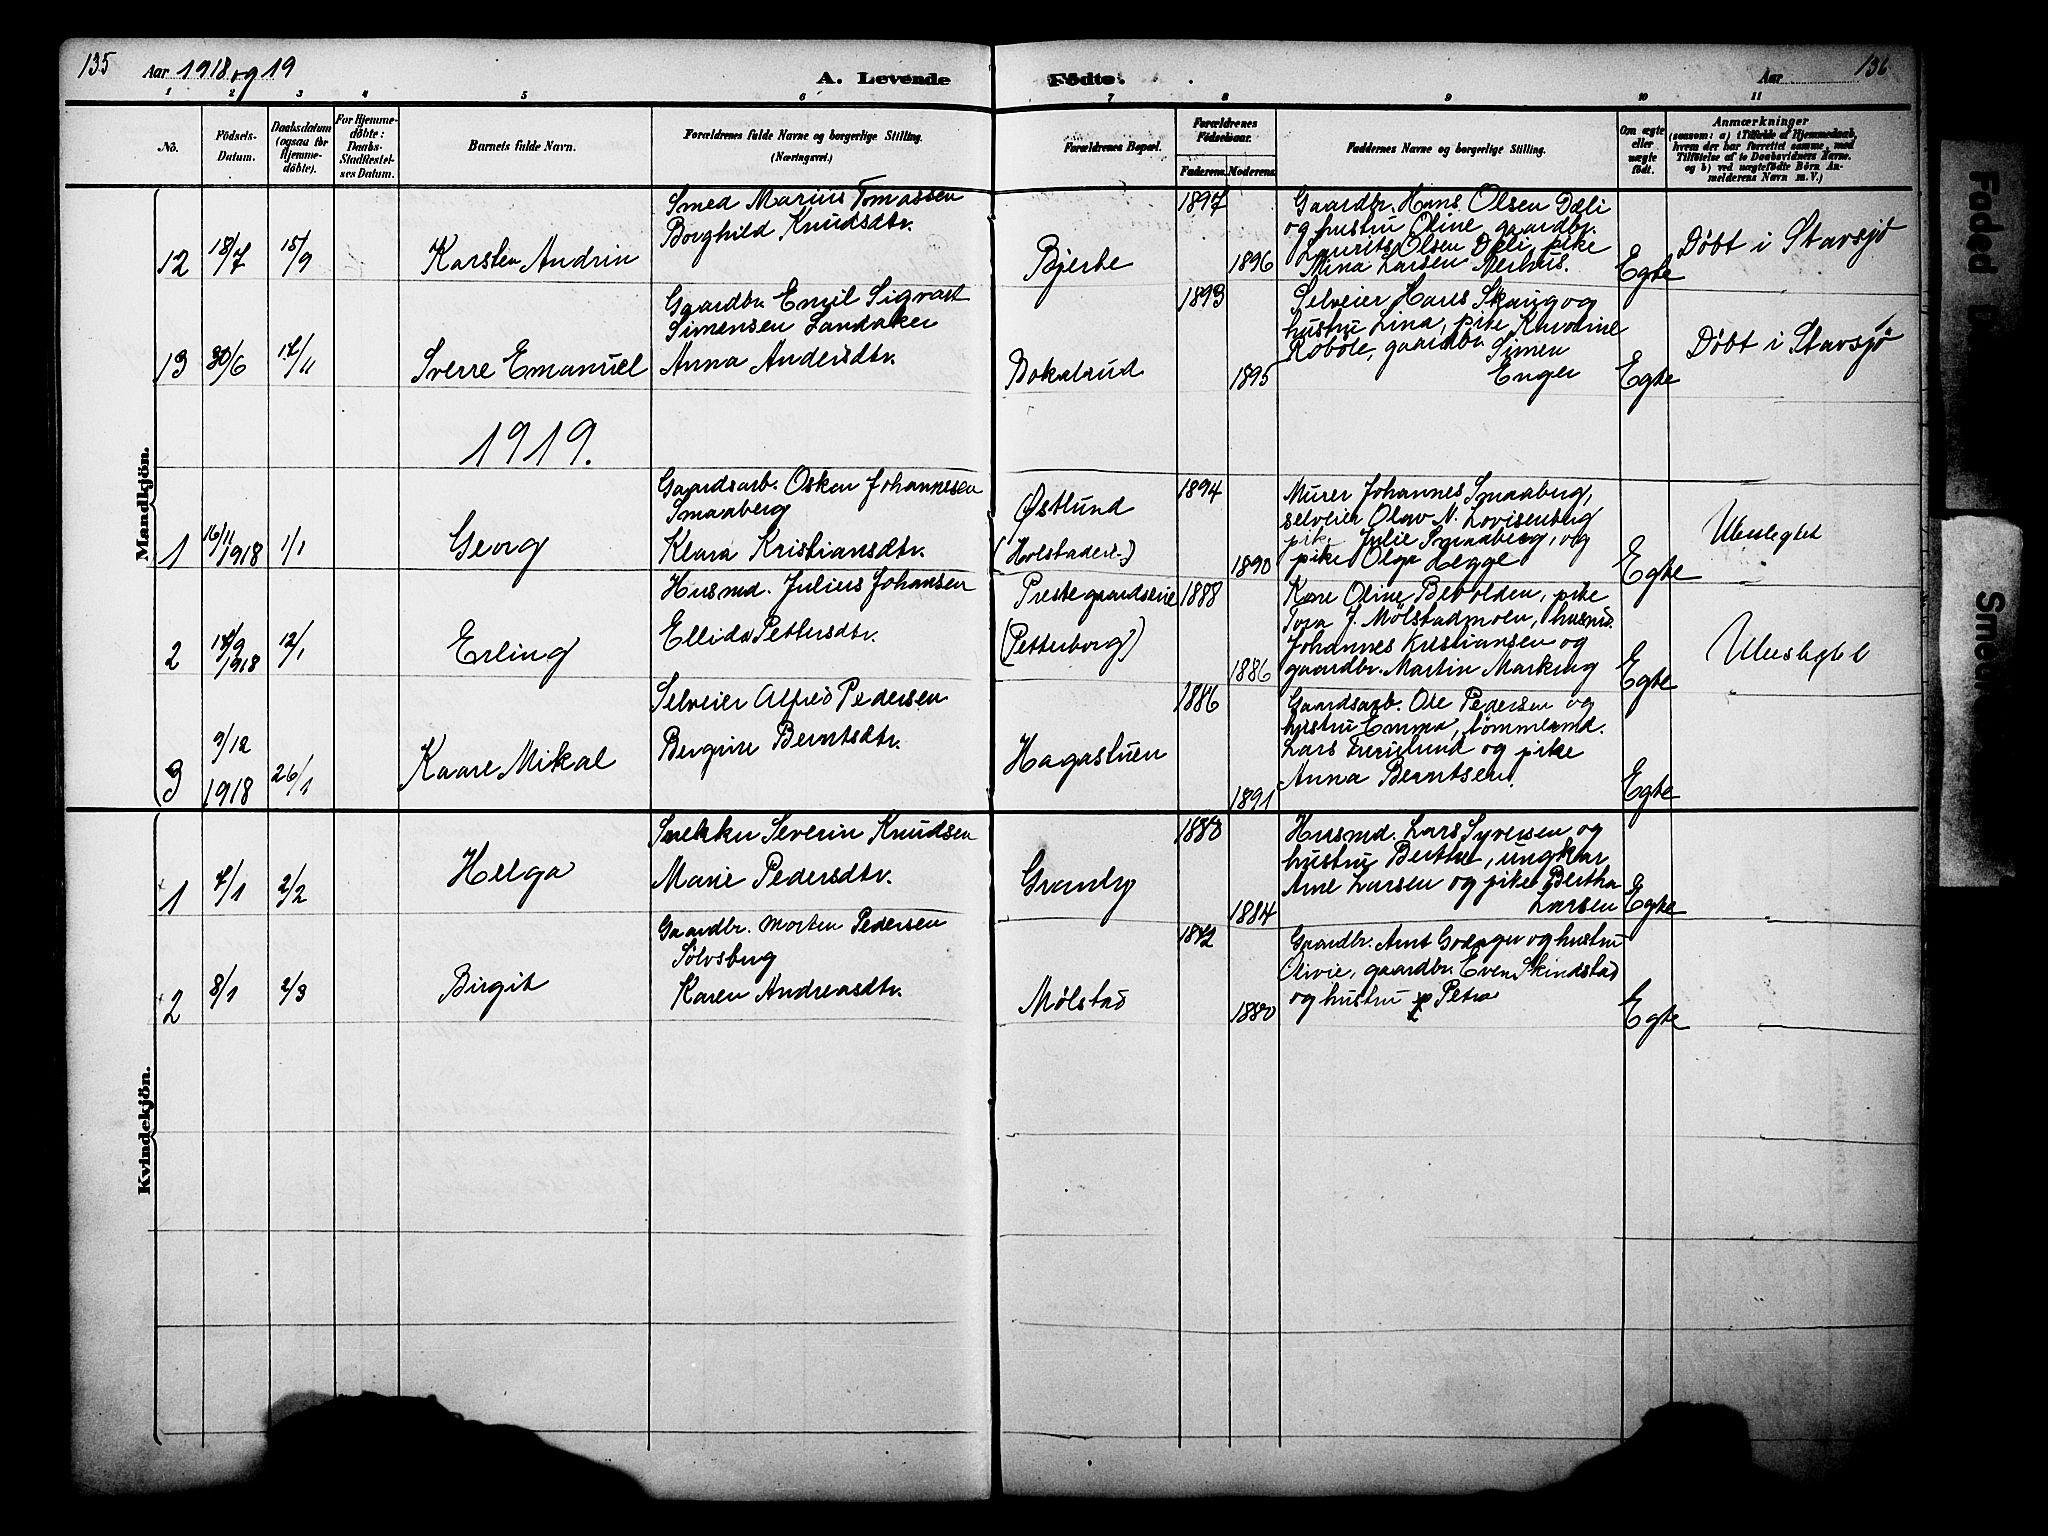 135 Aar 1918 og 19 A. Levende Födte. Aar 136
1 2 3 4 5 6 7 8 9 10 11
No.
Födsels-
Datum.
Daabsdatum
(ogsaa for
Hjemme-
döbte).
For Hjemme-
döbte:
Daabs-
Stadfæstel-
ses Datum.
Barnets fulde Navn.
Forældrenes fulde Navne og borgerlige Stilling.
(Næringsvei.)
Forældrenes Bopæl.
Forældrenes
Födselsaar.
Faderens. Moderens.
Faddernes Navne og borgerlige Stilling.
Om ægte
eller
uægte
født.
Anmærkninger
(saasom: a) i Tilfælde af Hjemmedaab,
hvem der har forrettet samme, med
Tilföielse af to Daabsvidners Navne,
og b) ved uægtefödte Börn An-
melderens Navn m. V.)
Mandkjön.
12 18/7 15/9 Karsten Andrin
Smed Marius Tomassen
Borghild Knudsdtr.
Bjerke
1897
1896
Gaardbr. Hans Olsen Dæli
og hustru Oline, gaardbr.
Laurits Olsen Dæli, pike
Mina Larsen Nerhus.
Egte
Døbt i Stavsjø
13 30/6 17/11 Sverre Emanuel
Gaardbr. Emil Sigvart
Simensen Landaker
Anna Andersdtr.
Bokalrud
1893
1895
Selveier Hans Skaug og
hustru Lina, pike Karoline
Robøle, gaardbr. Simen
Enger
Egte
Døbt i Stavsjø
1919.
1 16/11 1918 1/1 Georg
Gaardsarb. Oskar Johannesen
Smaaberg
Klara Kristiansdtr.
Østlund
(Holstadeie.)
1894
1890
Murer Johannes Smaaberg,
selveier Olav N. Lovisenberg
pike Julie Smaaberg, og
pike Olga Legge
Egte
Ubeslegtet
2 14/9 1918 12/1 Erling
Husmd. Julius Johansen
Ellida Pettersdtr.
Prestegaardseie
(Petterborg)
1888
1886
Kone Oline Bekolden, pike
Tora J. Mølstadmoen, husm.
Johannes Kristiansen og
gaardbr. Martin Markeng
Egte
Ubeslegtet
3 9/12 1918 26/1 Kaare Mikal
Selveier Alfred Pedersen
Bergine Berntsdtr.
Hagastuen
1886
1891
Gaardsarb. Ole Pedersen og
hustru Emma, tømmermd.
Lars og pike
Anna Berntsen.
Egte
Kvindekjön.
1 4/1 2/2 Helga
Snekker Severin Knudsen
Marie Pedersdtr.
Granly
1880
1884
Husmd. Lars Syversen og
hustru Berthe, ungkar
Arne Larsen og pike Bertha
Larsen
Egte
2 8/1 2/3 Birgit
Gaardbr. Morten Pedersen
Sølvsberg
Karen Andreasdtr.
Mølstad
1872
1880
Gaardbr. Arnt Grænger og hustru
Olivie, gaardbr. Even Skindstad
og hustru Petra
Egte
Faded